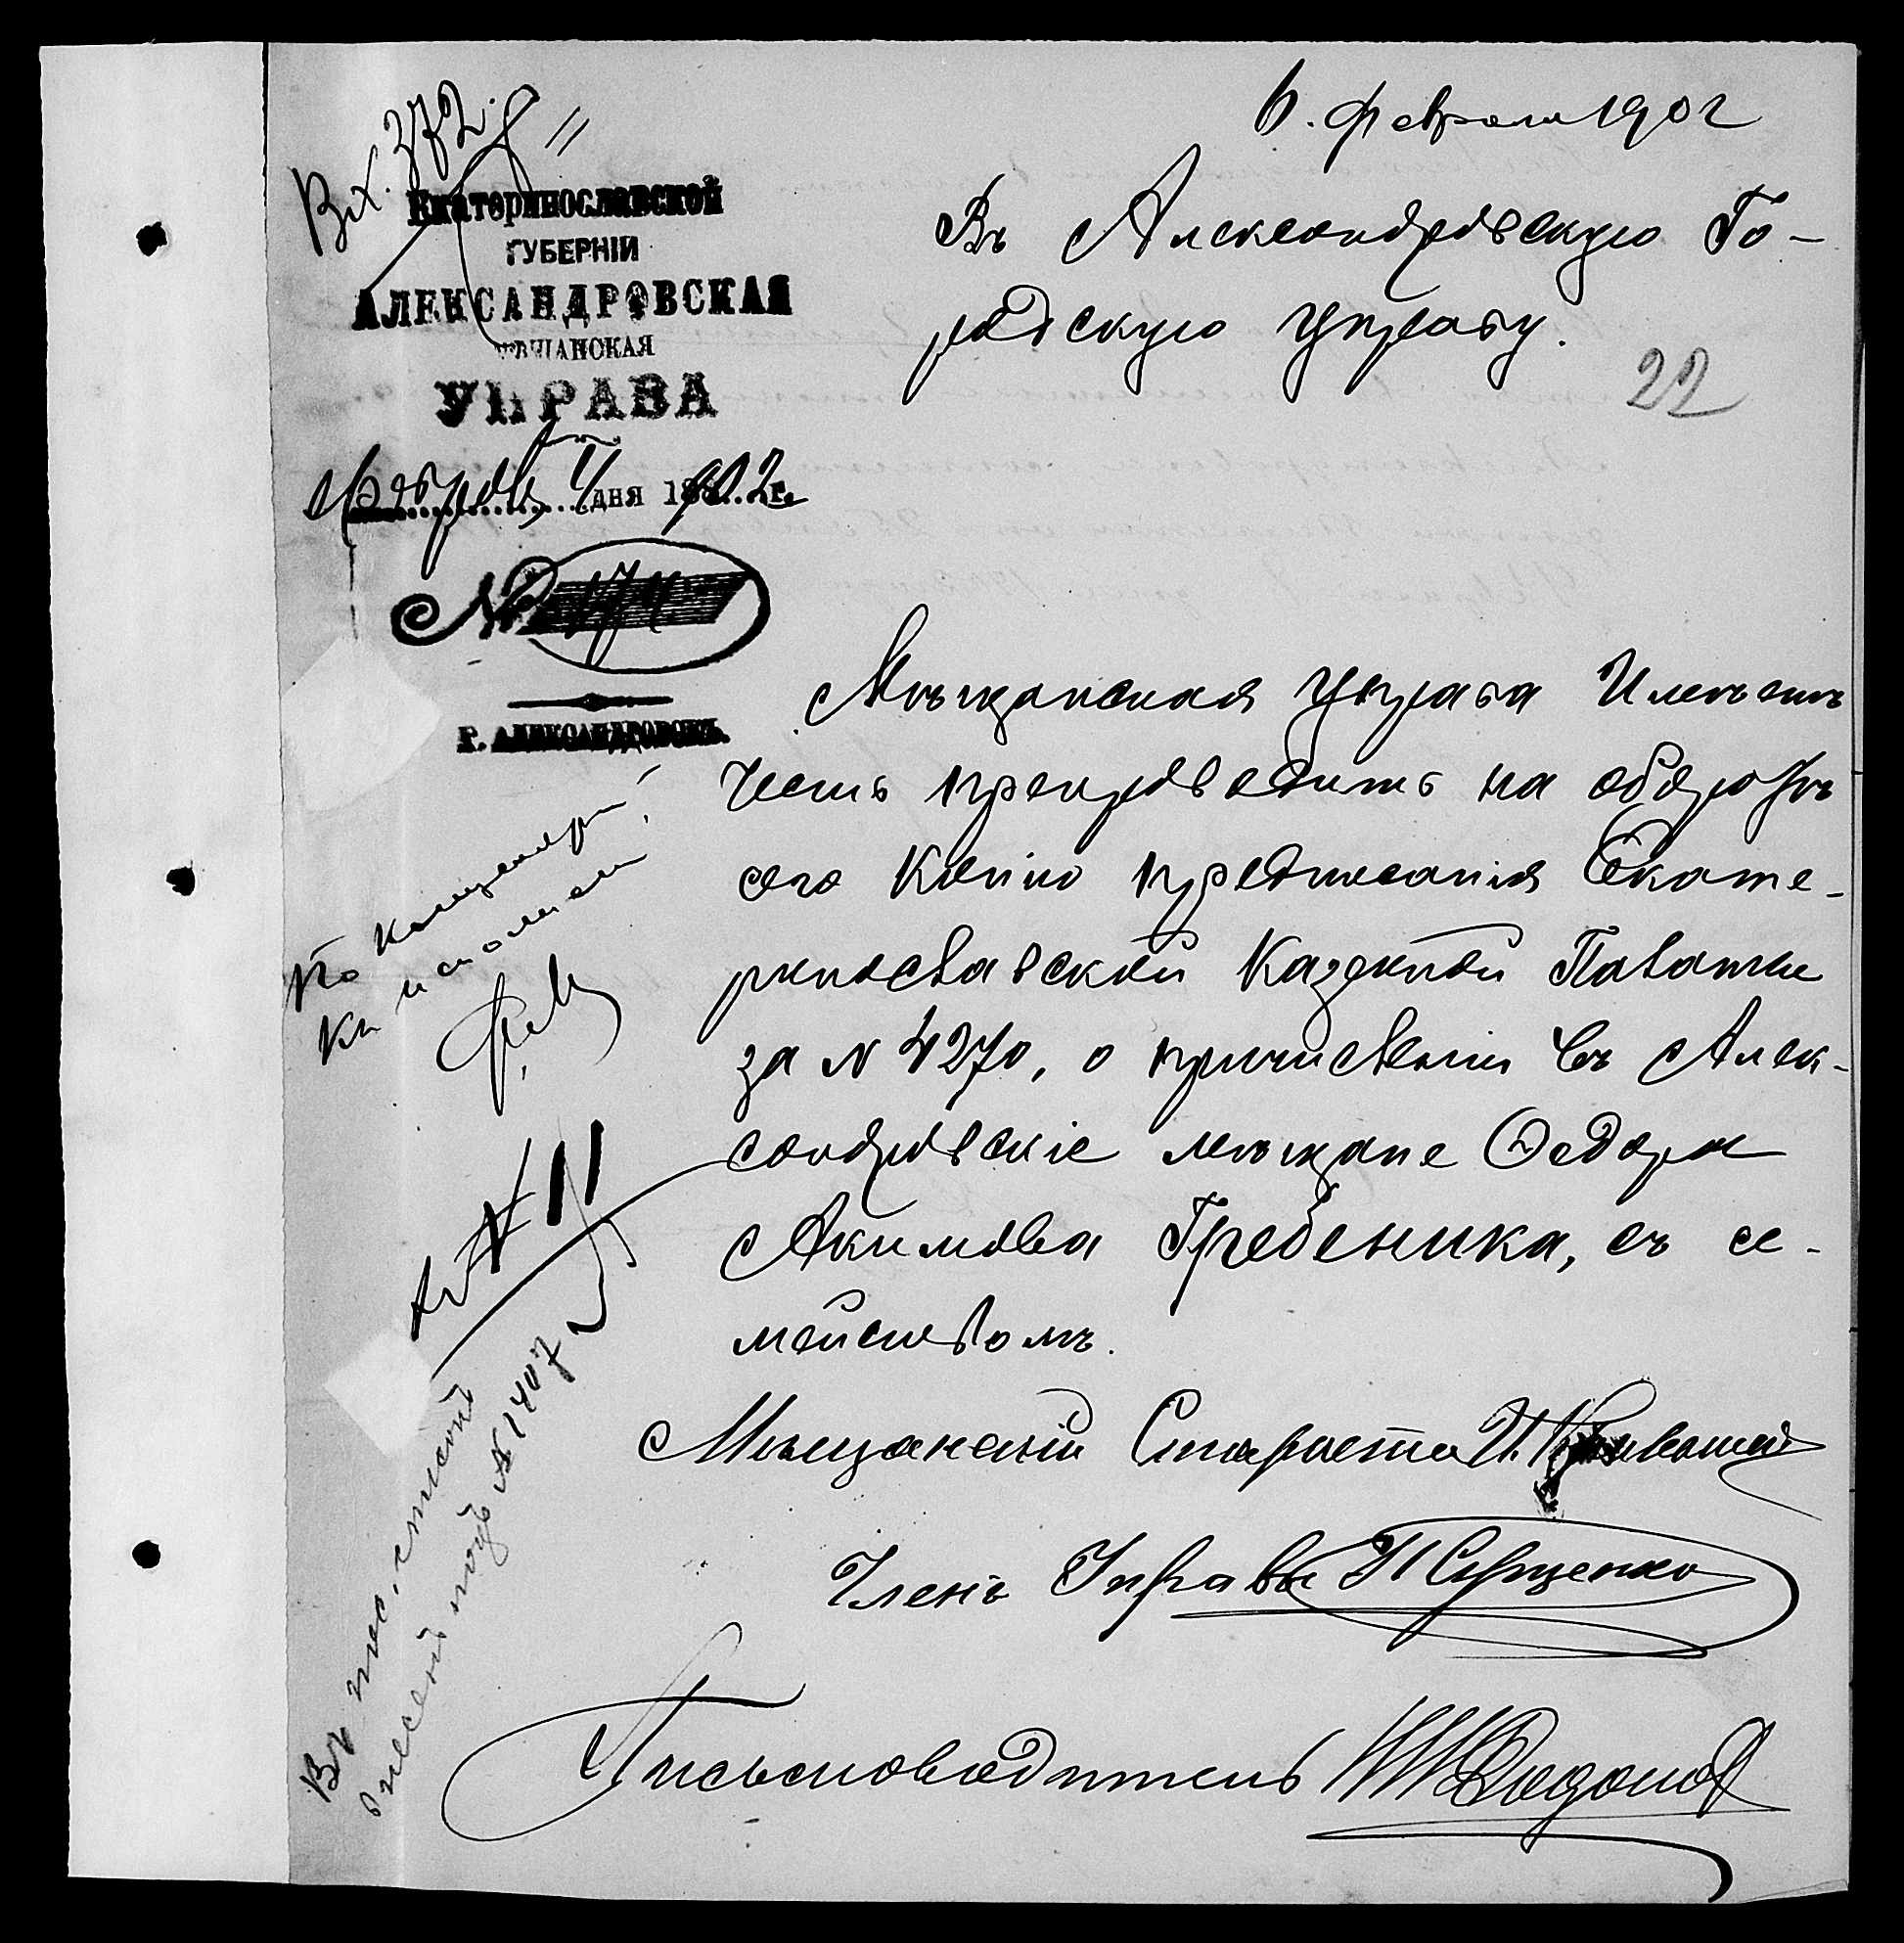 6. февраля 1902
Вх. 372.
Екатеринославской
ГУБЕРНІИ
АЛЕКСАНДРОВСКАЯ
МѢЩАНСКАЯ
УПРАВА
Февраля 4 дня 1902 г.
№ 174
Г. АЛЕКСАНДРОВСКЪ.
Въ Александровскую Го-
родскую Управу.
22
Мѣщанская Управа Имѣетъ
честь препроводить на оборотѣ
сего копію предписанія Екате-
ринославской Казенной Палаты
за № 4270, о причисленіи въ Алек-
сандровскіе мѣщане Федора
Акимова Гребеника, съ се-
мействомъ.
Мѣщанскій Староста И.
Членъ Управы
Письмоводитель
По канцеляріи
Къ исполненію
Къ № 11
Въ пос. списокъ
внесенъ подъ № 1407